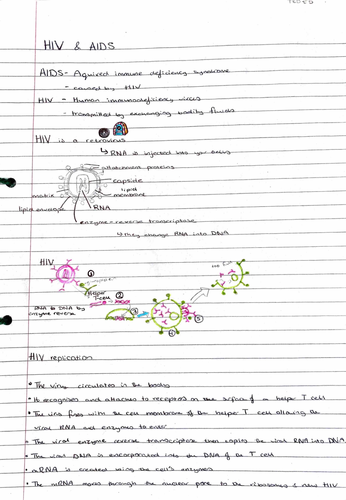 HIV & AIDS
AIDS - Aquired immune deficiency syndrome
- caused by HIV
HIV - Human immunodeficiency virus
- transmitted by exchanging bodily fluids
HIV is a retrovirus
↳ RNA is injected into your cells
attachment proteins
capside
matrix
lipid
membrane
lipid envelope
RNA
enzyme - reverse transcriptase
↳ they change RNA into DNA
HIV
①
helper
T-cell
②
RNA to DNA by
enzyme reverse
③
④
⑤
HIV replication
• The virus circulates in the body
• It recognises and attaches to receptors on the surface of a helper T cell
• The virus fuses with the cell membrane of the helper T cell allowing the
viral RNA and enzymes to enter
• The viral enzyme reverse transcriptase then copies the viral RNA into DNA
• The viral DNA is incorporated into the DNA of the T cell
• mRNA is created using the cell's enzymes
• The mRNA moves through the nuclear pore to the ribosomes & new HIV